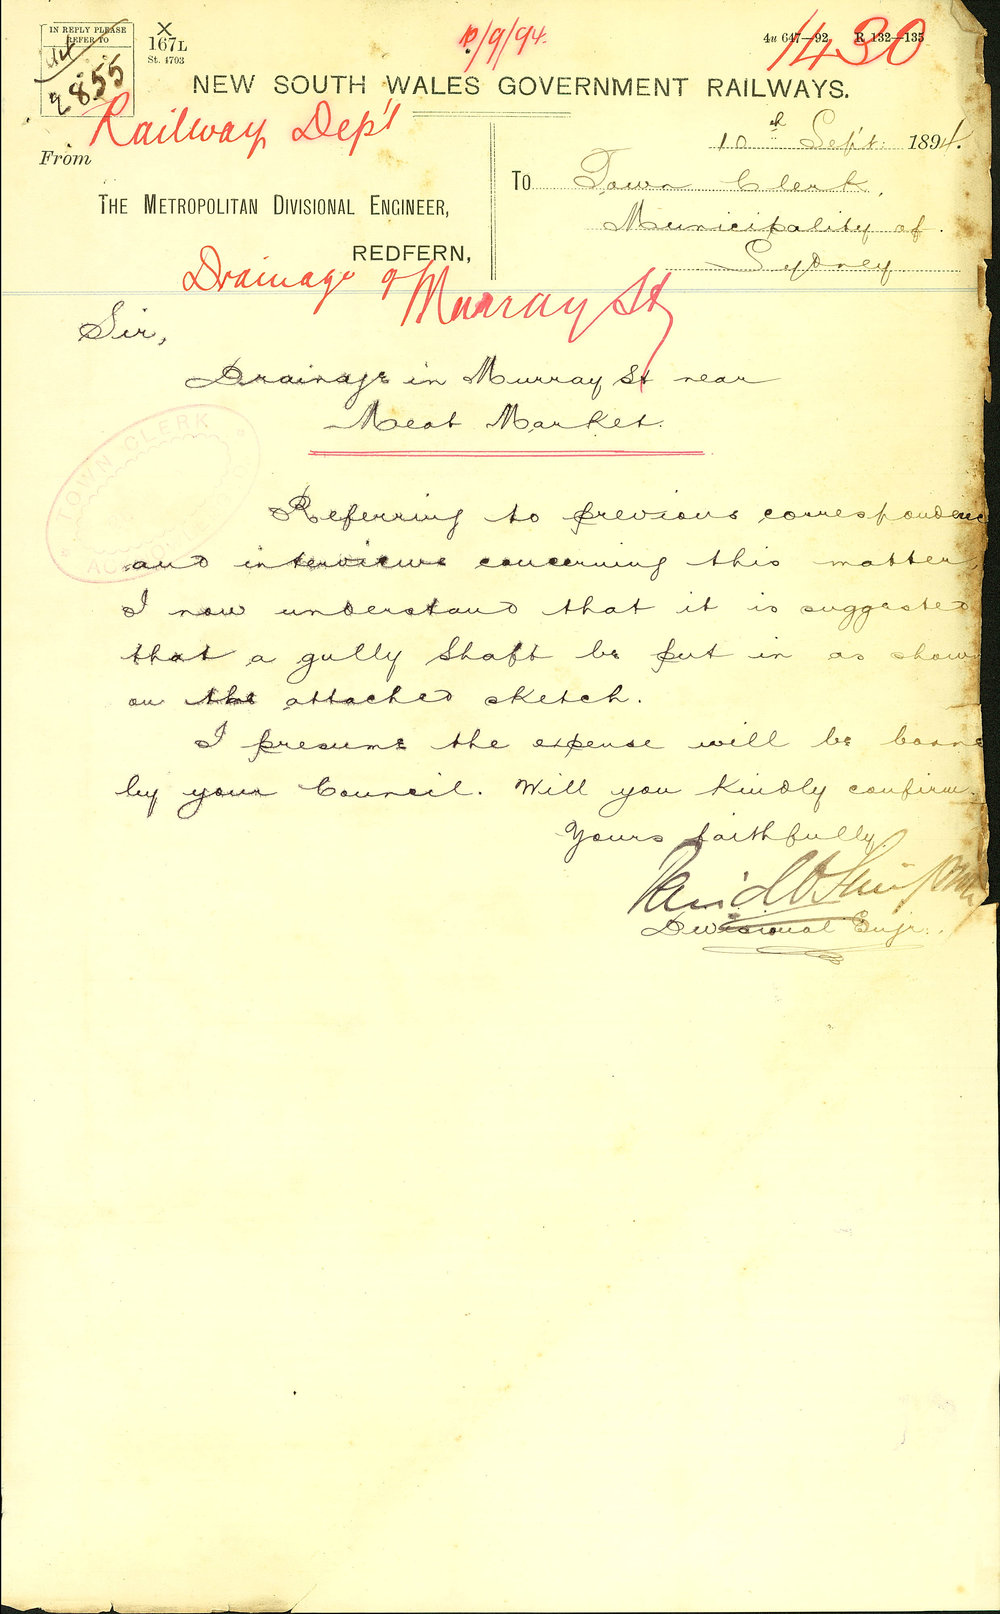 IN REPLY PLEASE
REFER TO
94/
2855
X
167L
St. 4703
10/9/94.
4u 647—92 R 132—135
1430
NEW SOUTH WALES GOVERNMENT RAILWAYS.
Railway Dep't
From
10th Sept: 1894.
THE METROPOLITAN DIVISIONAL ENGINEER,
REDFERN,
To Town Clerk,
Municipality of
Sydney
Drainage of Murray St
Sir,
Drainage in Murray St near
Meat Market.
TOWN CLERK
Referring to previous correspondence
and interviews concerning this matter,
I now understand that it is suggested
that a gully shaft be put in as shown
on the attached sketch.
I presume the expense will be borne
by your Council. Will you kindly confirm.
Yours faithfully.
Divisional Engr.